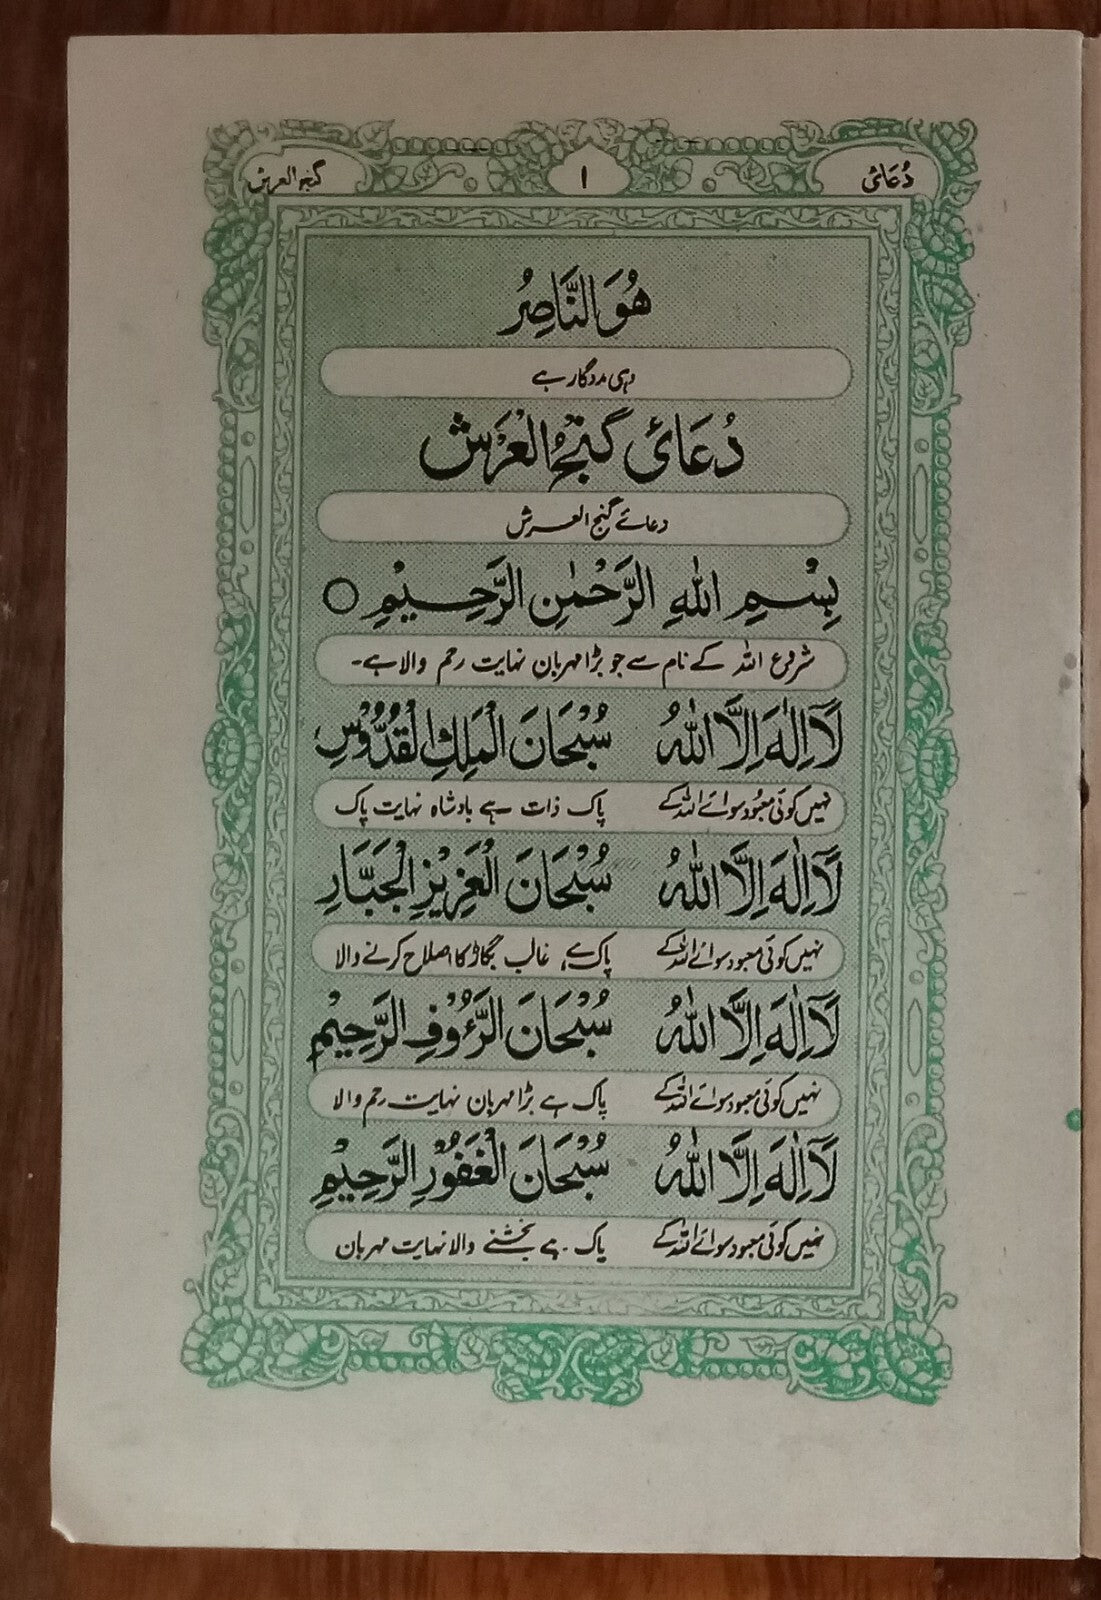 دُعَائ ١ گنجُ العرش
هُوَ النَّاصِرُ
وہی مددگار ہے
دُعَائ گنجُ العَرْش
دعائے گنج العرش
بِسْمِ اللهِ الرَّحْمٰنِ الرَّحِيْمِ ○
شروع اللہ کے نام سے جو بڑا مہربان نہایت رحم والا ہے۔
لَآ اِلٰهَ اِلَّا اللهُ سُبْحَانَ الْمَلِكِ الْقُدُّوْسِ
نہیں کوئی معبود سوائے اللہ کے پاک ذات ہے بادشاہ نہایت پاک
لَآ اِلٰهَ اِلَّا اللهُ سُبْحَانَ الْعَزِيْزِ الْجَبَّارِ
نہیں کوئی معبود سوائے اللہ کے پاک ہے غالب بگاڑ کا اصلاح کرنے والا
لَآ اِلٰهَ اِلَّا اللهُ سُبْحَانَ الرَّءُوْفِ الرَّحِيْمِ
نہیں کوئی معبود سوائے اللہ کے پاک ہے بڑا مہربان نہایت رحم والا
لَآ اِلٰهَ اِلَّا اللهُ سُبْحَانَ الْغَفُوْرِ الرَّحِيْمِ
نہیں کوئی معبود سوائے اللہ کے پاک ہے بخشنے والا نہایت مہربان